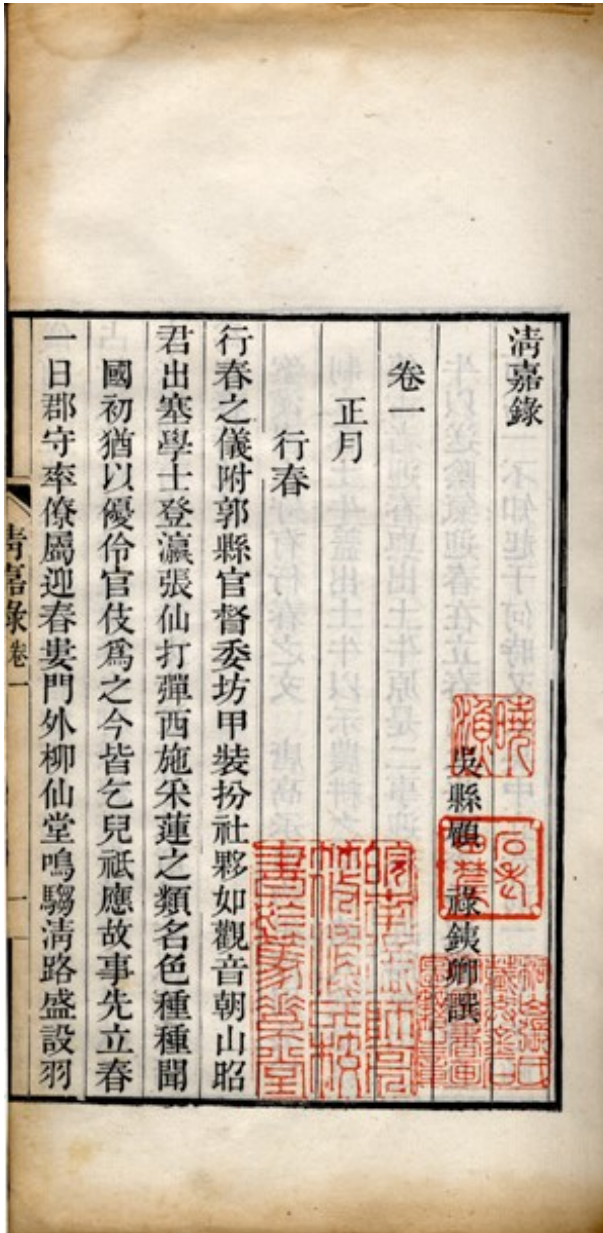 清嘉錄
吳縣顧 祿鐵卿譔
卷一
正月
行春
行春之儀附郭縣官督委坊甲裝扮社夥如觀音朝山昭
君出塞學士登瀛張仙打彈西施采蓮之類名色種種聞
國初猶以優伶官伎爲之今皆乞兒祗應故事先立春
一日郡守率僚屬迎春婁門外柳仙堂鳴騶清路盛設羽
清嘉录卷一
一